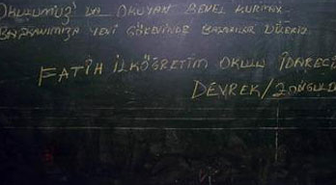 OKULUMUZ'DA OKUYAN GENEL KURMAY
BAŞKANIMIZA YENİ GÖREVİNDE BAŞARILAR DİLERİZ.
FATİH İLKÖĞRETİM OKULU İDARECİ
DEVREK/ZONGULD